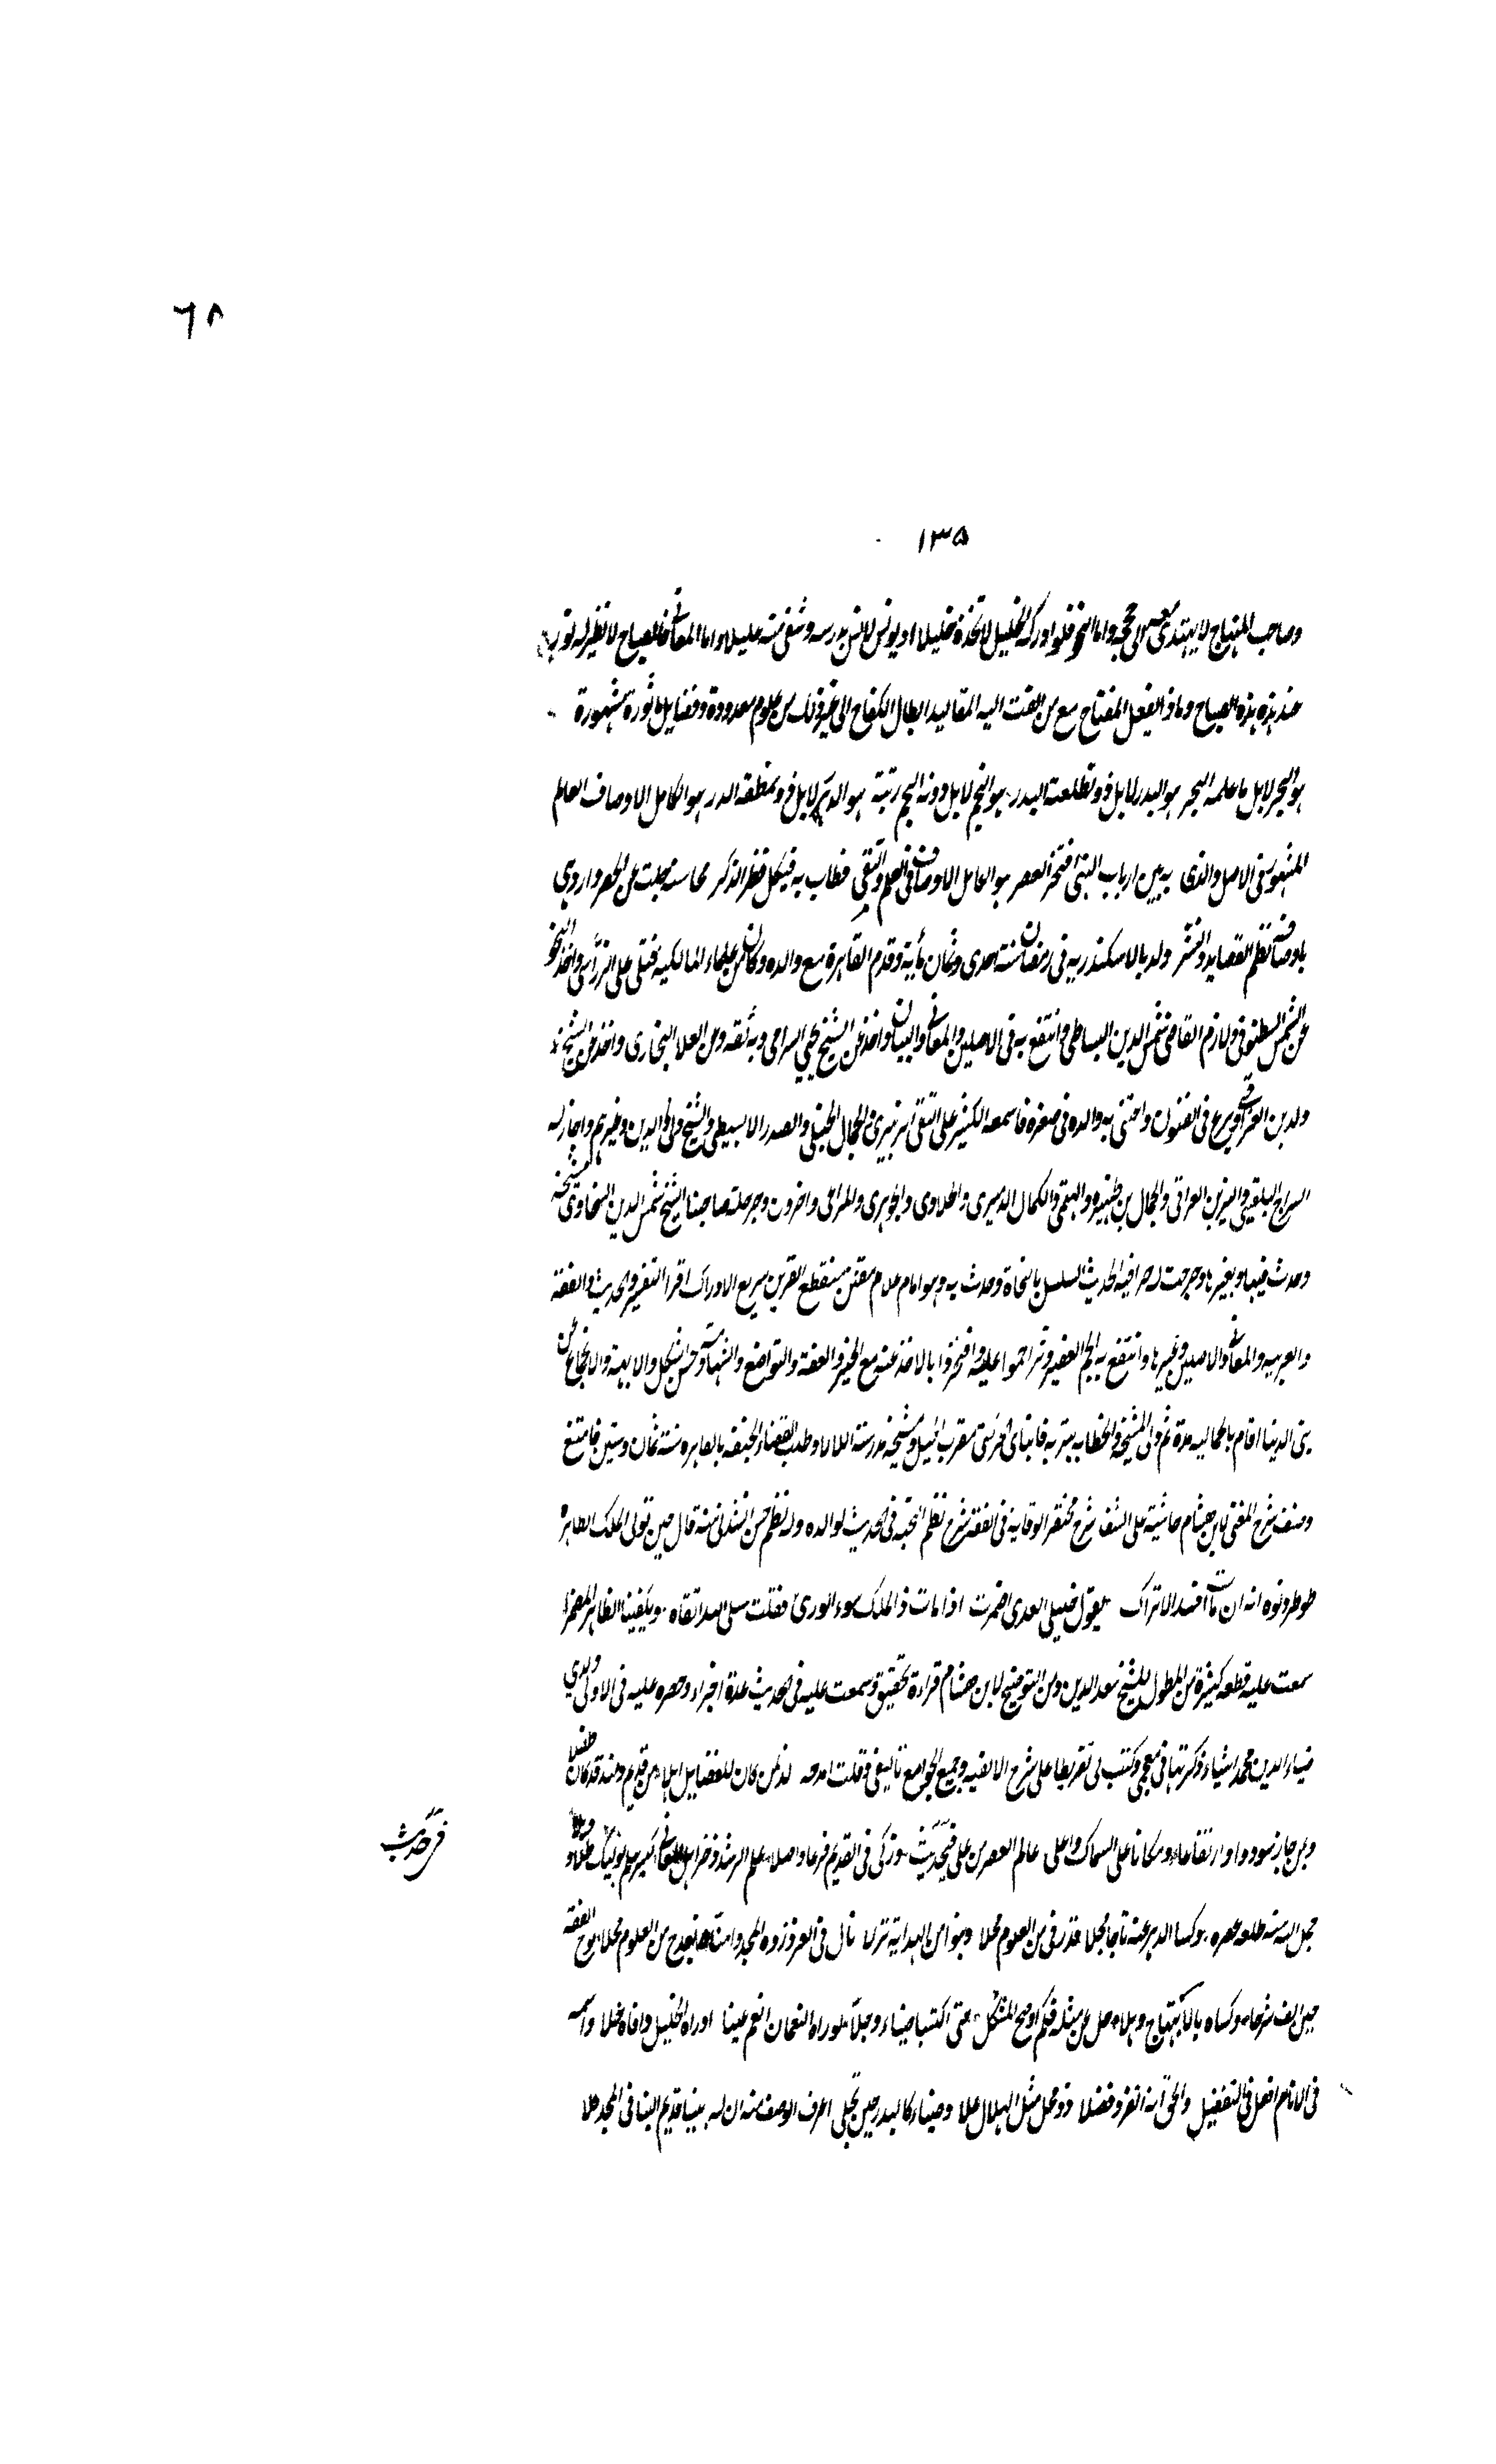 ٦٨
١٣٥
وصاحب المنهاج لا يهتدى معه الى حجه واما النحو فلو ادركه الخليل لاتخذه خليلا او يونس لانس بدرسه وشفى منه عليلا واما المعانى فالمصباح لا نظير له نوره
عند هذه الصباح وماذا يفعل المفتاح مع من القت اليه المقاليد ابطال الكفاح الى غير ذلك من علوم معدودة وفضايل ماثورة مشهورة
هو البحر لا بل ما علمه البحر هو البدر لا بل دون طلعته البدر هو النجم لا بل دونه النجم رتبة هو الدر لا بل دون منطقه الدر هو الكامل الاوصاف العالم
المشهور فى الاصل والذى به بين ارباب النهى افتخر العصر هو الكامل الاوصاف فى العلم والتقى فطاب به فى كل قطر الذكر محاسنه جلت عن الحصر وازدهى
باوصافه نظم القصايد والنثر ولد بالاسكندريه فى رمضان سنة احدى وثمان مأية وقدم القاهرة مع والده وكان من علماء المالكيه فتلى على الزراتى واخذ النحو
عن الشمس الشطنوفى ولازم القاضى شمس الدين البساطى وانتفع به فى الاصلين والمعانى والبيان واخذ عن الشيخ يحيى السيرامى وبه تفقه وعن العلا البخارى واخذ عن الشيخ
ولى الدين العراقى وبرع فى الفنون واعتنى به والده فى صغره فاسمعه الكثير على التقى الزبيرى والجمال الحنبلى والصدر الابشيطى والشيخ ولى الدين وغيرهم واجاز له
السراج البلقينى والزين العراقى والجمال بن ظهيره والهيثمى والكمال الدميرى والحلاوى والجوهرى والمراغى واخرون وخرج له صاحبنا الشيخ شمس الدين السخاوى مشيخة
وحدث بها وبغيرها وخرجت له جزا فيه الحديث المسلسل بالنحاة وحدث به وهو امام علام مفنن منقطع القرين سريع الادراك اقرا التفسير والحديث والفقه
والعربيه والمعانى والاصلين وغيرها وانتفع به الجم الغفير وتزاحموا عليه وافتخروا بالاخذ عنه مع الخير والعفة والتواضع والشهامة وحسن الشكل والابهة والانجماع عن
بنى الدنيا اقام بالجماليه مدة ثم ولى المشيخة والخطابه بتربة قايتباى الجركسى بقرب الجبل ومشيخة مدرسة اللالا وطلب لقضاء الحنفيه بالقاهره سنة ثمان وستين فامتنع
وصنف شرح المغنى لابن هشام حاشية على الشفا شرح مختصر الوقاية فى الفقه شرح نظم النخبه فى الحديث لوالده وله نظم حسن انشدنى منه قال حين تولى الملك الظاهر
ططر ونوه انه ان مات افسد الاتراك يقول خليلى العدى اضمرت اذا مات ذا الملك سوء الورى فقلت سل الله ابقاه ويكفينا الظاهر المضمرا
سمعت عليه قطعه كثيرة من المطول للشيخ سعد الدين ومن التوضيح لابن هشام قراءة تحقيق وسمعت عليه فى الحديث عدة اجزاء وحضره عليه فى الاولى ولدى
ضياء الدين محمد اشياء ذكرتها فى معجمى وكتب لى تقريظا على شرح الالفيه وجمع الجوامع تاليفى وقلت امدحه لذ بمن كان للفضايل اهلا من قديم ومنذ قد كان طفلا
وبمن حاز سوددا وارتفاعا ومكانا على السماك واعلى عالم العصر من على فى حديث وزكى فى القديم فرعا واصلا علم الرشد ذو
فى حديث
جمل الله منه طلعة عصره وكسا الدهر عنه تاجا محلا قد رقى من العلوم محلا نال فى العز ذروه المجد
حين الف شرحا وكساه بالابتهاج فكم اوضح المشكل حتى اكتسبا ضياء وجلا لو راه النعمان انعم عينا او راه الخليل وافاه خلا واسمه
فى الانام افعل فى التفضيل والحق انه انفرد فضلا ذو محل مثل الهلال علا وضياء كالبدر حين تجلى اعرف الوصف منه ان له بيتا قديم البنا فى المجد حلا